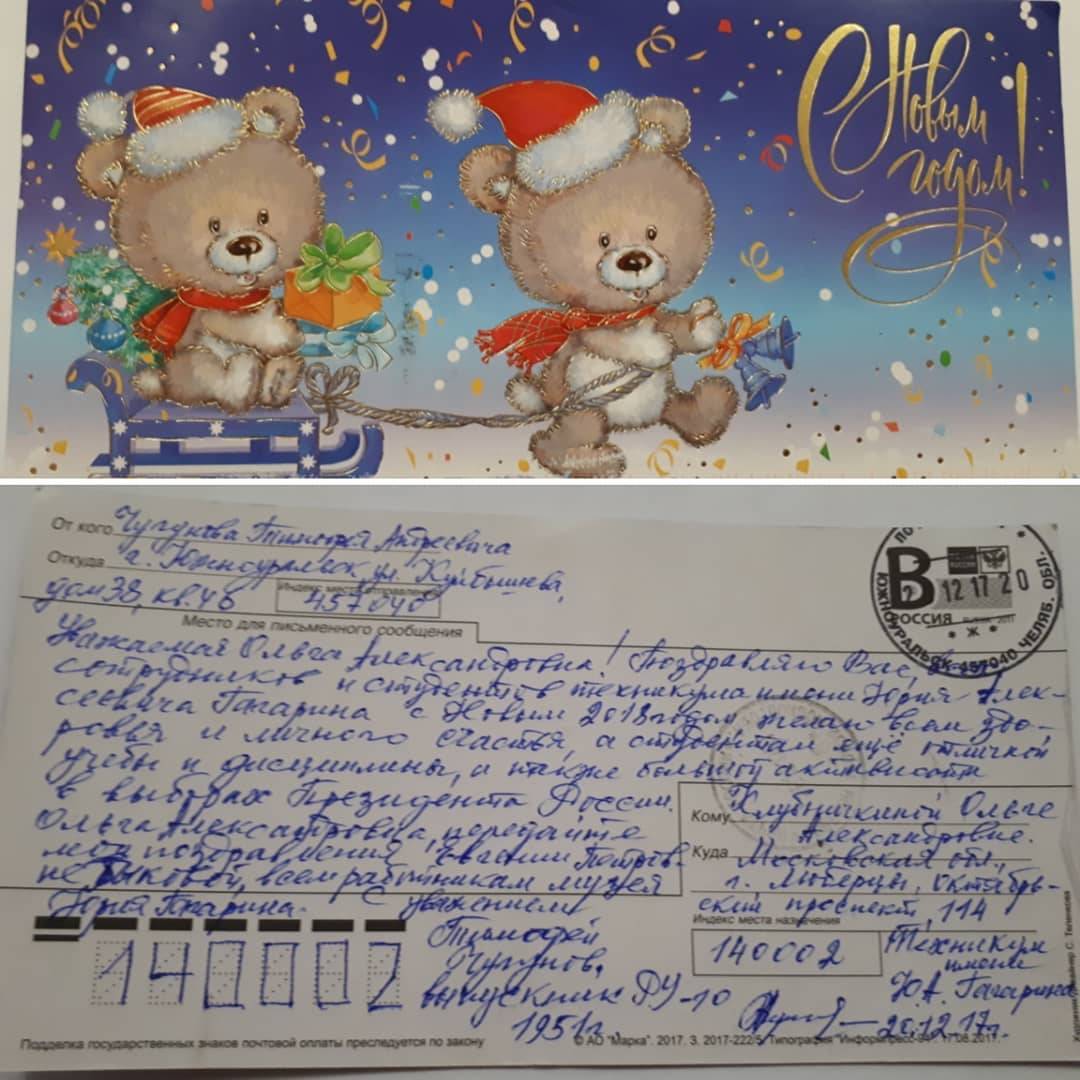 С Новым
годом!
От кого Чугунова Тимофея Андреевича
Откуда г. Южноуральск, ул. Куйбышева,
дом 38, кв. 48
Индекс места отправления
457040
Место для письменного сообщения
Уважаемая Ольга Александровна! Поздравляю Вас,
сотрудников и студентов техникума имени Юрия Алек-
сеевича Гагарина с Новым 2018 годом, желаю всем здо-
ровья и личного счастья, а студентам ещё отличной
учебы и дисциплины, а также большой активности
в выборах Президента России.
Ольга Александровна, передайте
мои поздравления Евгении Петров-
не Рыковой, всем работникам музея
Юрия Гагарина. С уважением
Тимофей
Чугунов,
выпускник РУ-10
1951г.
20.12.17г.
Кому Клубничкиной Ольге
Александровне.
Куда Московская обл.,
г. Люберцы, Октябрь-
ский проспект, 114
Индекс места назначения
140002
Техникум
имени
Ю.А. Гагарина
140002
В
РОССИЯ
12 17 20
ЮЖНОУРАЛЬСК 457040 ЧЕЛЯБ. ОБЛ.
* Ж *
Подделка государственных знаков почтовой оплаты преследуется по закону
© АО "Марка". 2017. З. 2017-222/5. Типография "Информпресс-94". 17.08.2017.